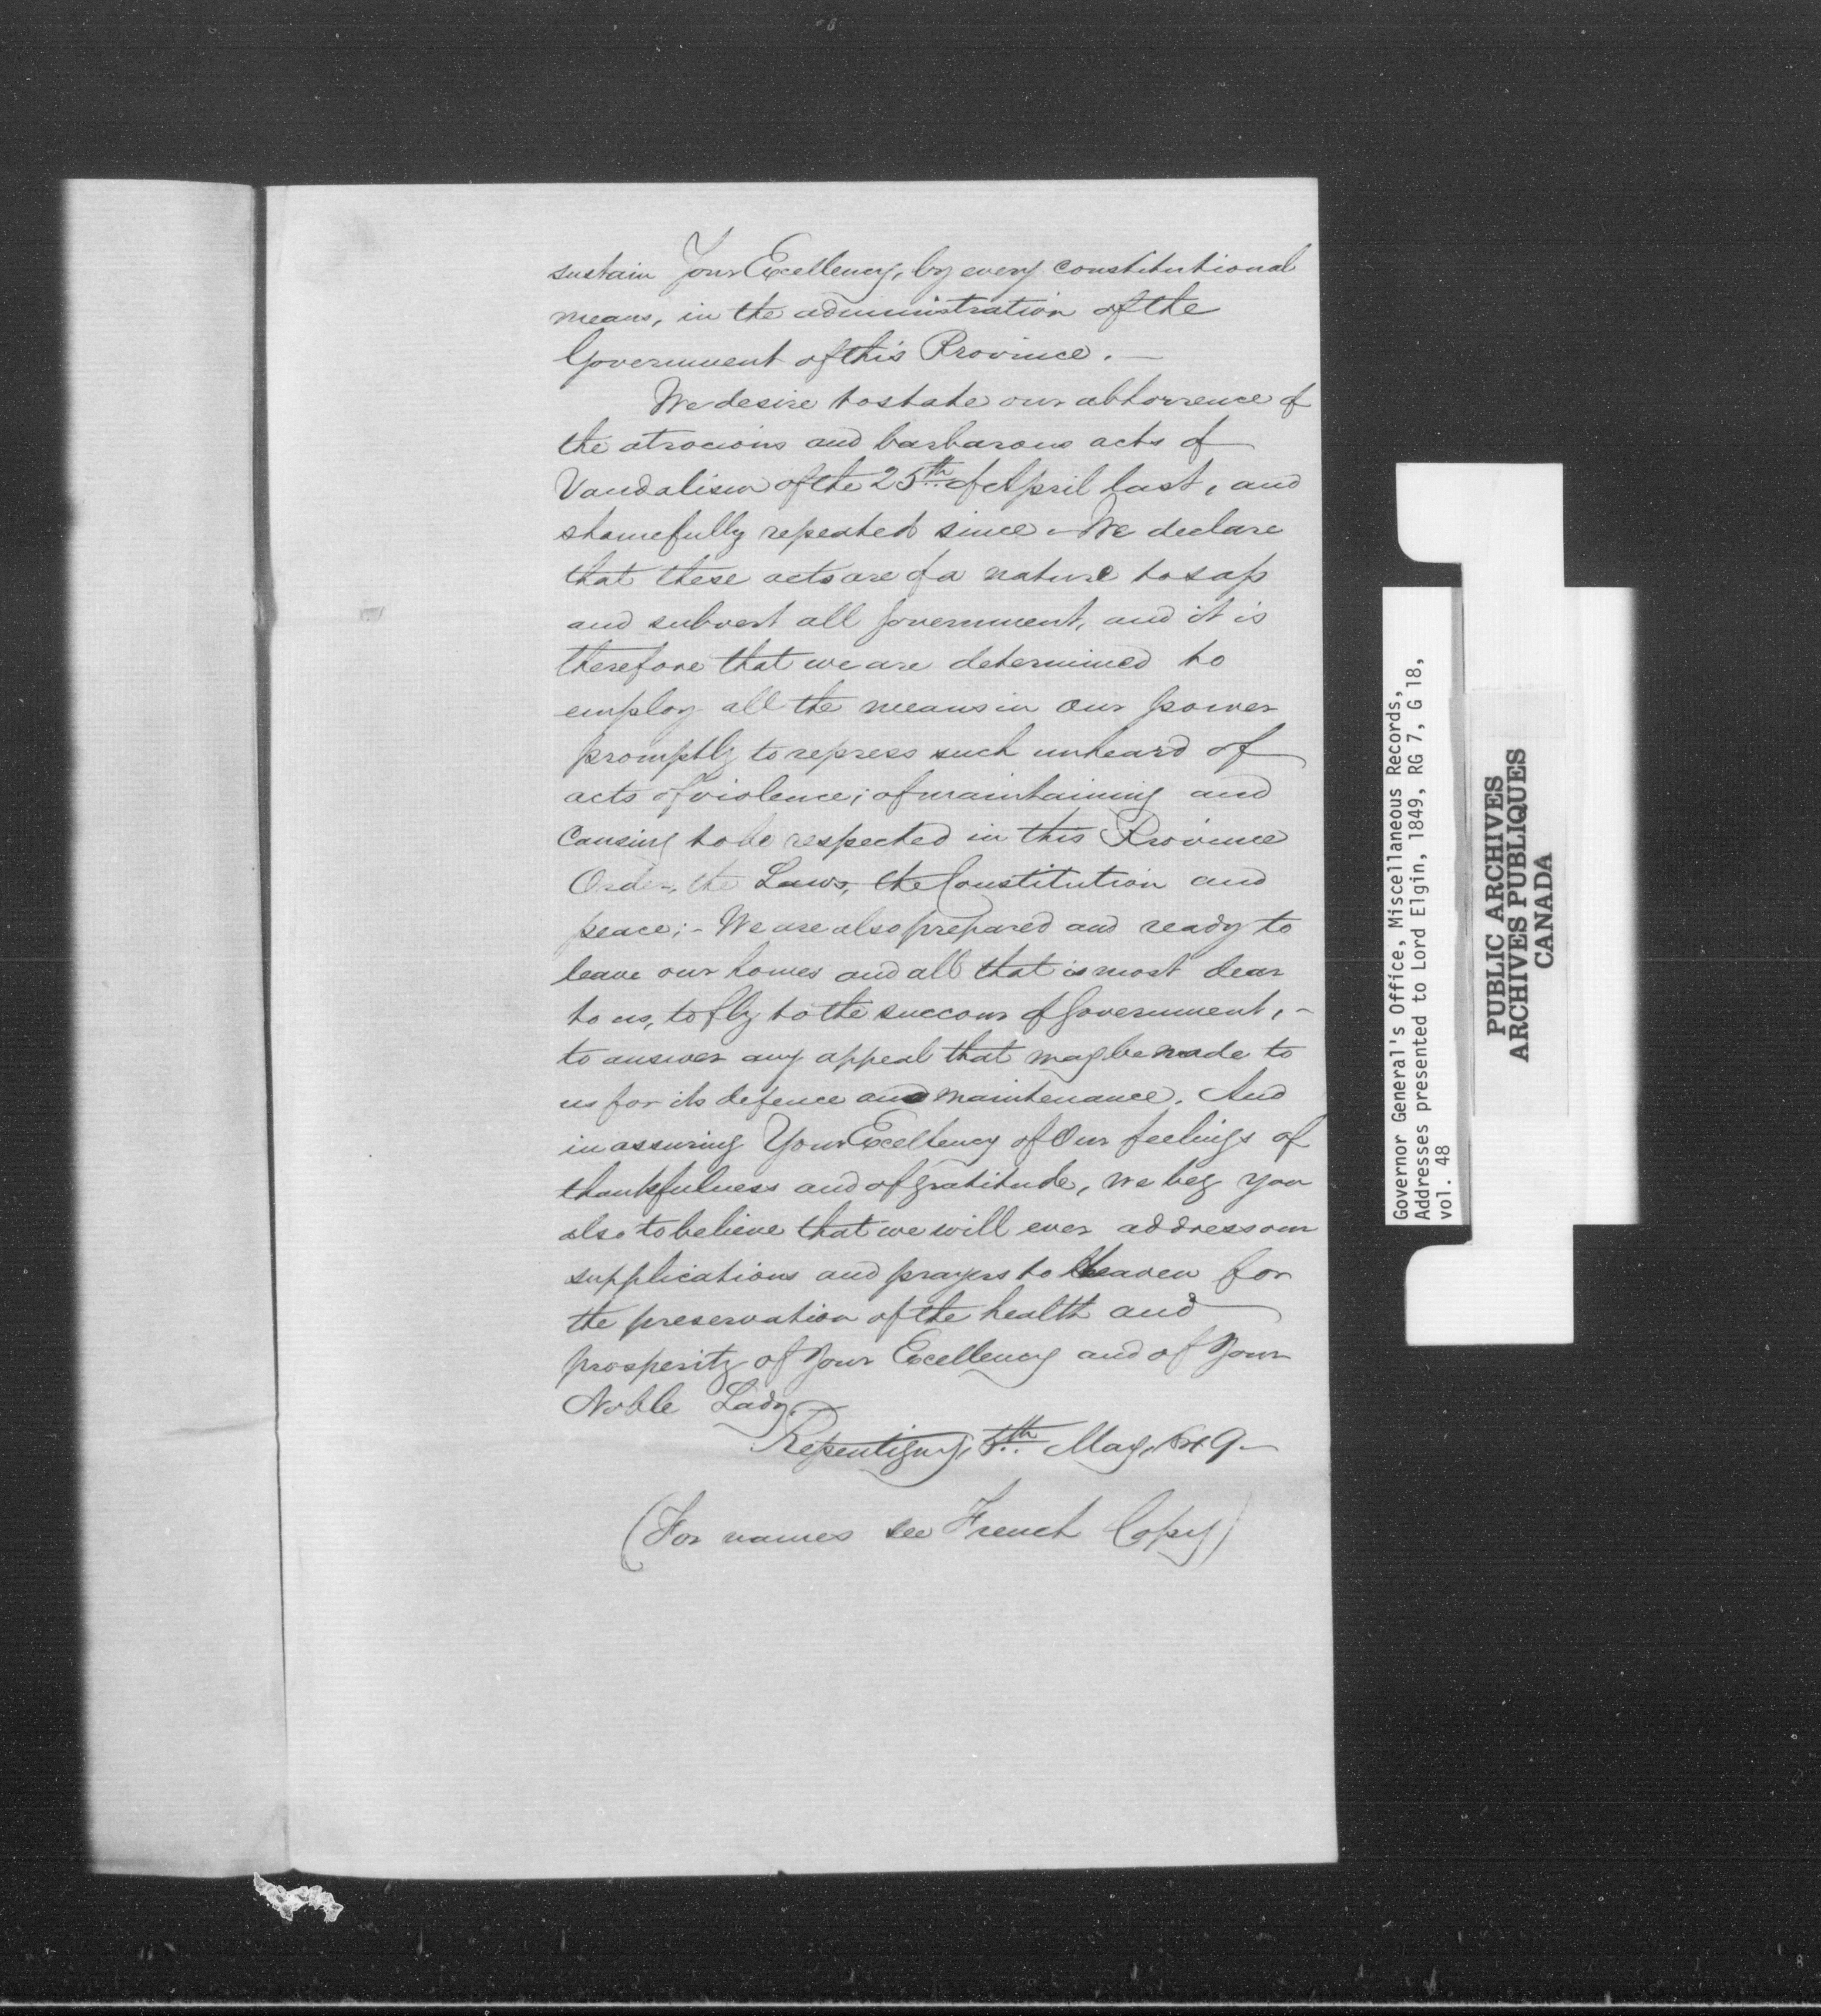 sustain Your Excellency, by every constitutional
means, in the administration of the
Government of this Province. —
We desire to state our abhorrence of
the atrocious and barbarous acts of
Vandalism of the 25th of April last, and
shamefully repeated since – We declare
that these acts are of a nature to sap
and subvert all government, and it is
therefore that we are determined to
employ all the means in our power
promptly to repress such unheard of
acts of violence; of maintaining and
causing to be respected in this Province
Order, the Laws, the Constitution and
peace; - We are also prepared and ready to
leave our homes and all that is most dear
to us, to fly to the succour of Government, -
to answer any appeal that may be made to
us for its defence and maintenance. And
in assuring Your Excellency of Our feelings of
thankfulness and of gratitude, we beg you
also to believe that we will ever address our
supplications and prayers to Heaven for
the preservation of the health and
prosperity of Your Excellency and of Your
Noble Lady.
Repentigny, th May, 1849 –
(For names see French Copy)
Governor General's Office, Miscellaneous Records,
Addresses presented to Lord Elgin, 1849, RG 7, G 18,
vol. 48
PUBLIC ARCHIVES
ARCHIVES PUBLIQUES
CANADA